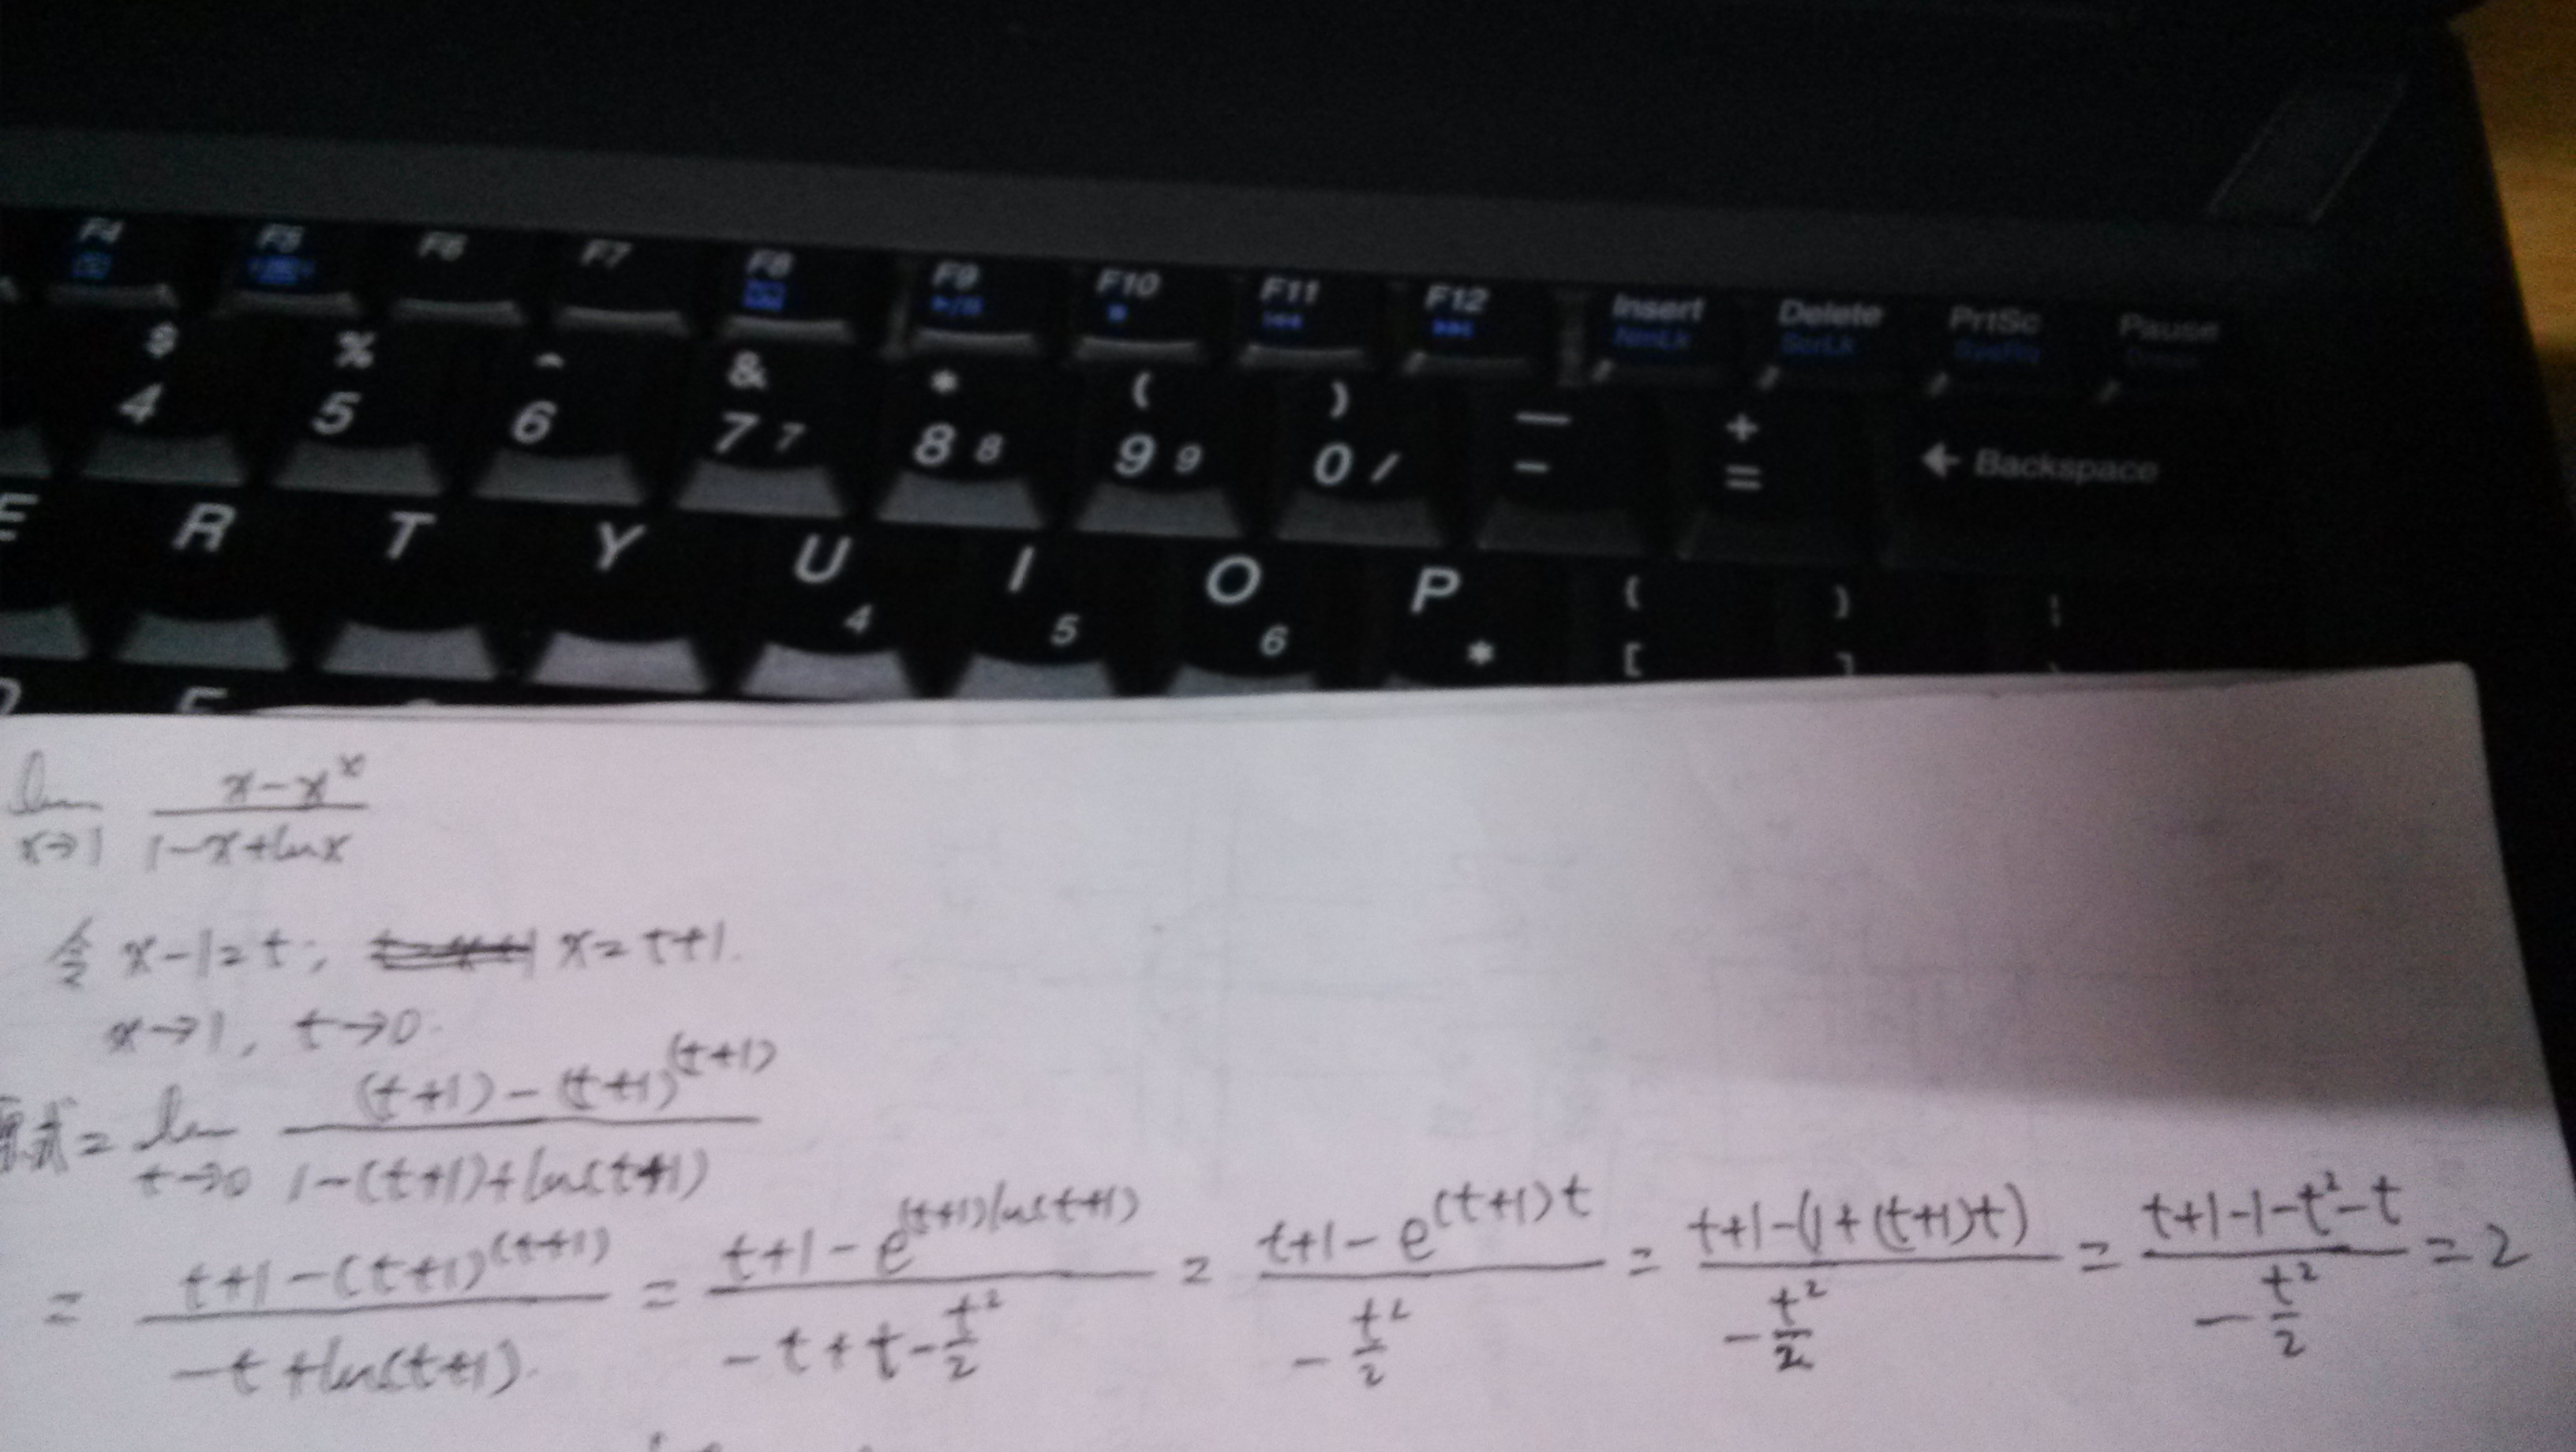 F4 F5 F6 F7 F8 F9 F10 F11 F12 Insert Delete PrtSc Pause
NmLk ScrLk SysRq
$ % ^ & * ( ) — +
4 5 6 7 7 8 8 9 9 0 / - = ← Backspace
E R T Y U I O P { }
4 5 6 * [ ]
lim x→1 (x-x^x)/(1-x+lnx)
令 x-1=t, x=t+1.
x→1, t→0.
原式= lim t→0 ((t+1)-(t+1)^(t+1))/(1-(t+1)+ln(t+1))
= (t+1-(t+1)^(t+1))/(-t+ln(t+1)) = (t+1-e^((t+1)ln(t+1)))/(-t+t-t²/2) = (t+1-e^((t+1)t))/(-t²/2) = (t+1-(1+(t+1)t))/(-t²/2) = (t+1-1-t²-t)/(-t²/2) =2